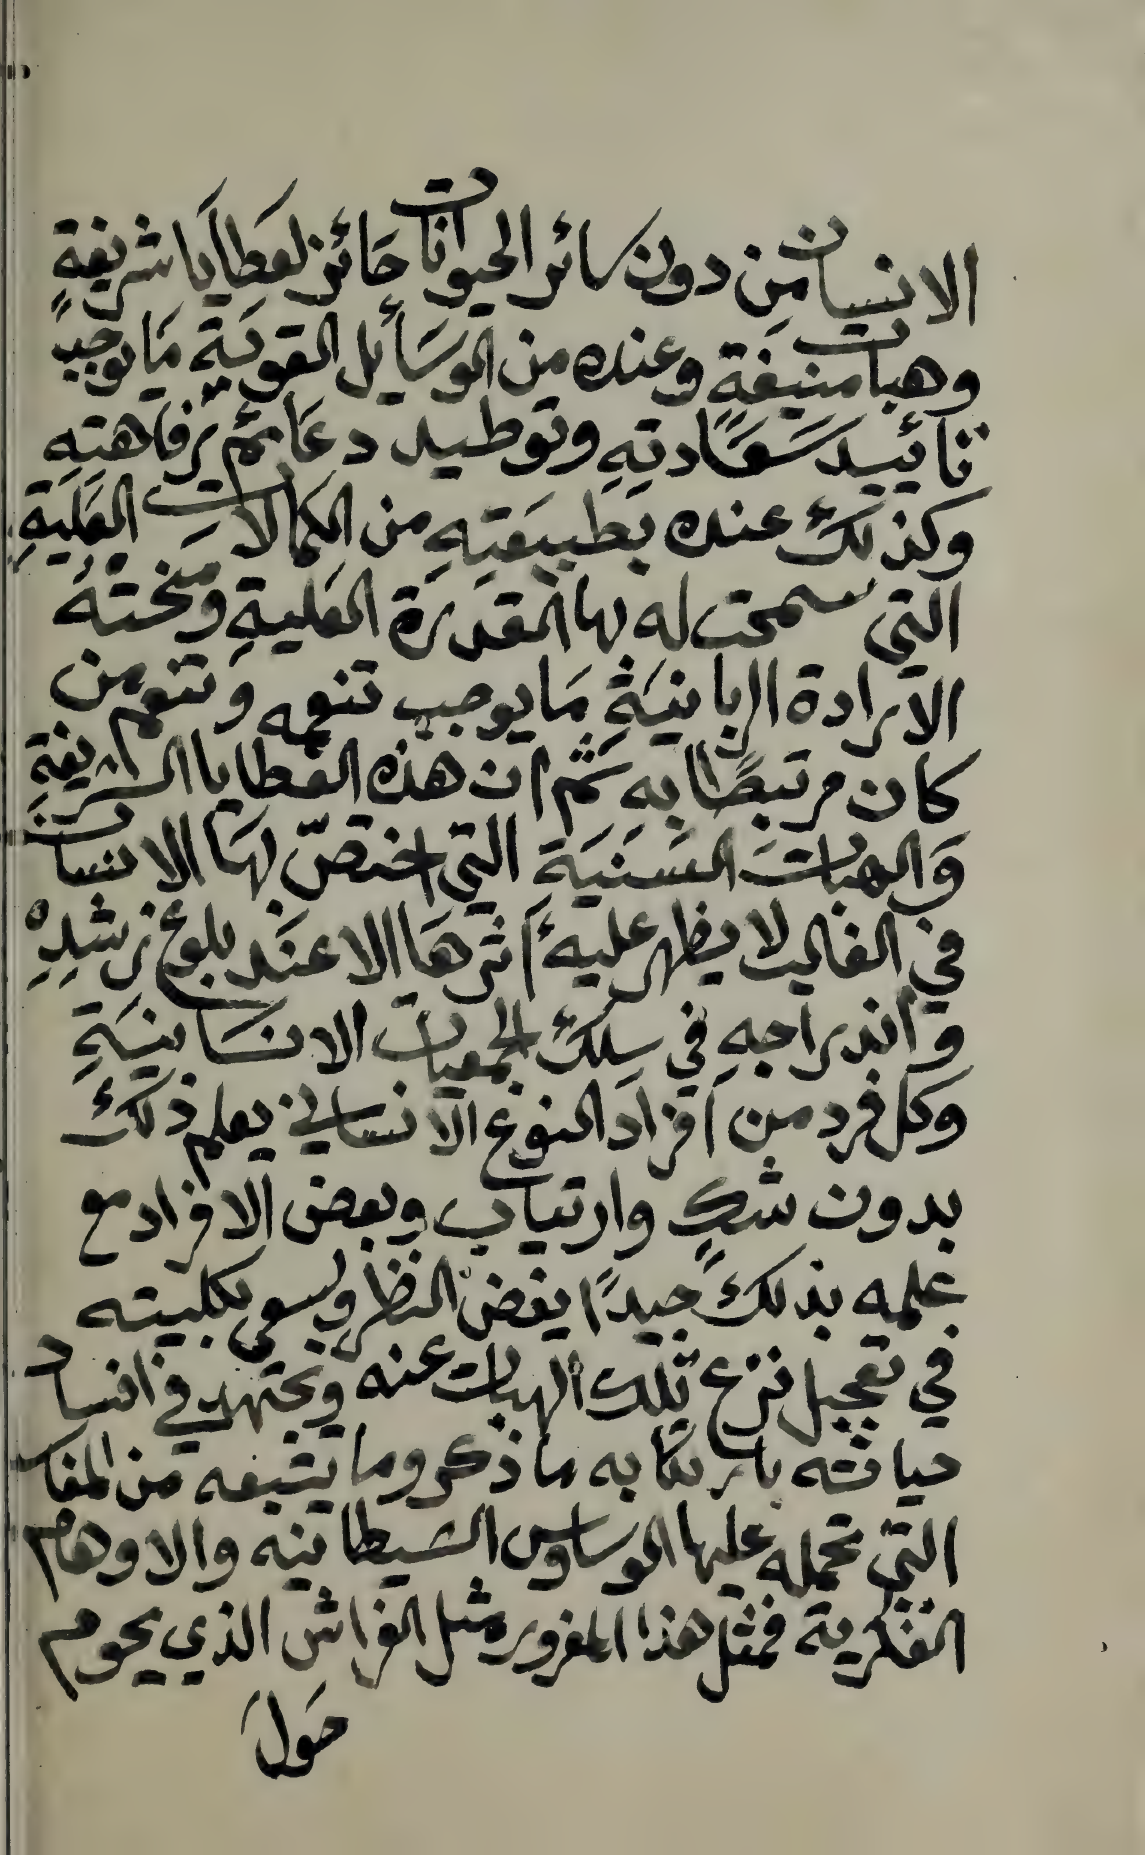 الانسان من دون سائر الحيوانات حائز لعَطَايا شريفةٍ
وهبات منيفةٍ وعنده من الوسَائل القويَةِ مَا يوجب
تأييد سَعَادتِهِ وتوطيد دعَائم رفاهتِهِ
وكذلك عنده بَطبيعَتِهِ من الكمالات العَليَةِ
التي سمحت له بها المقدرَة العَليةِ ومنحتْهُ
الارادة الربانيَةِ مَا يوجب تنعمه وَتنعم من
كان مرتبطًا به ثم ان هذه العطايا الشريفةِ
وَالهبات السَنيَةِ التي اختصّ بهَا الانسان
في الغالب لا يظهر عليه أثرهَا الا عنَد بلوغ رشدِهِ
واندراجهِ في سلك الجمعيات الانسَانيَةِ
وكل فرد من أفرَاد النوع الانساني يعلم ذلك
بدون شكٍ وارتياب وبعض الافراد مع
علمه بذلك جيدًا يغض النظر ويسعى بكليته
في تعجيل نزع تلك الهبات عنه ويجتهد في افساد
حياته بارتكابه ما ذكر وما يتبعه من المفاسد
التي تحمله عليها الوساوس الشيطانيه والاوهام
الفكرية فمثل هذا المغرور مثل الفراش الذي يحوم
حَولَ